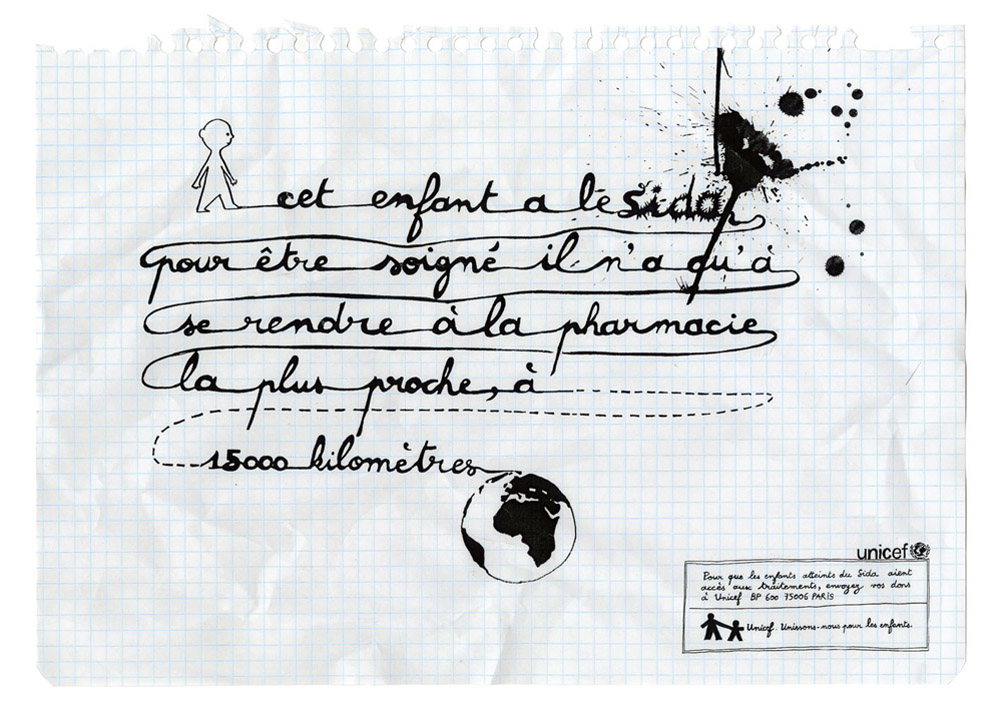 cet enfant a le Sida
pour être soigné il n'a qu'à
se rendre à la pharmacie
la plus proche, à
15000 kilomètres
unicef
Pour que les enfants atteints du Sida aient
accès aux traitements, envoyez vos dons
à Unicef BP 600 75006 PARIS
Unicef. Unissons-nous pour les enfants.